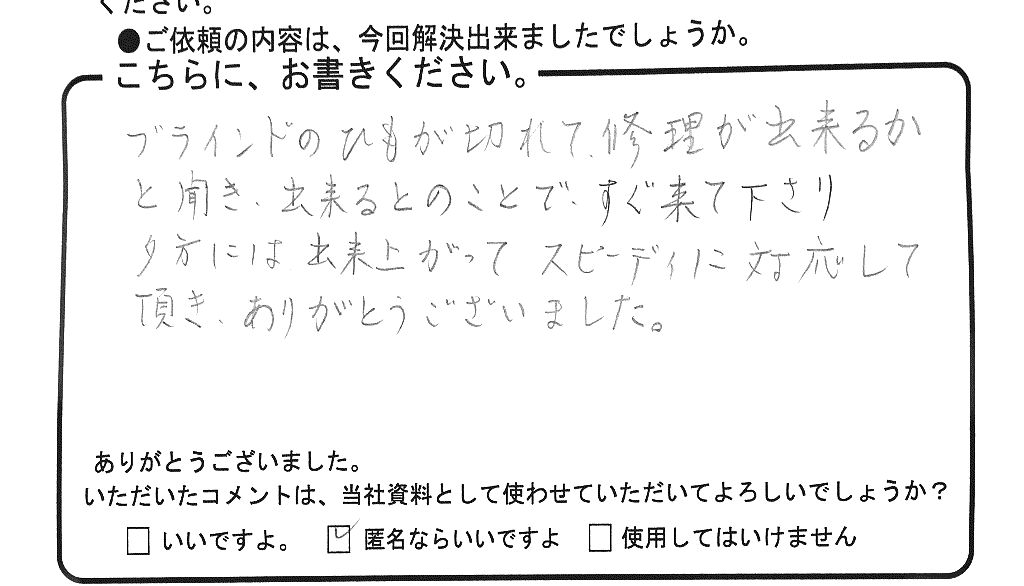 ください。
●ご依頼の内容は、今回解決出来ましたでしょうか。
こちらに、お書きください。
ブラインドのひもが切れて、修理が出来るか
と聞き、出来るとのことで、すぐ来て下さり
夕方には出来上がってスピーディに対応して
頂き、ありがとうございました。
ありがとうございました。
いただいたコメントは、当社資料として使わせていただいてよろしいでしょうか？
□ いいですよ。 ☑ 匿名ならいいですよ □ 使用してはいけません